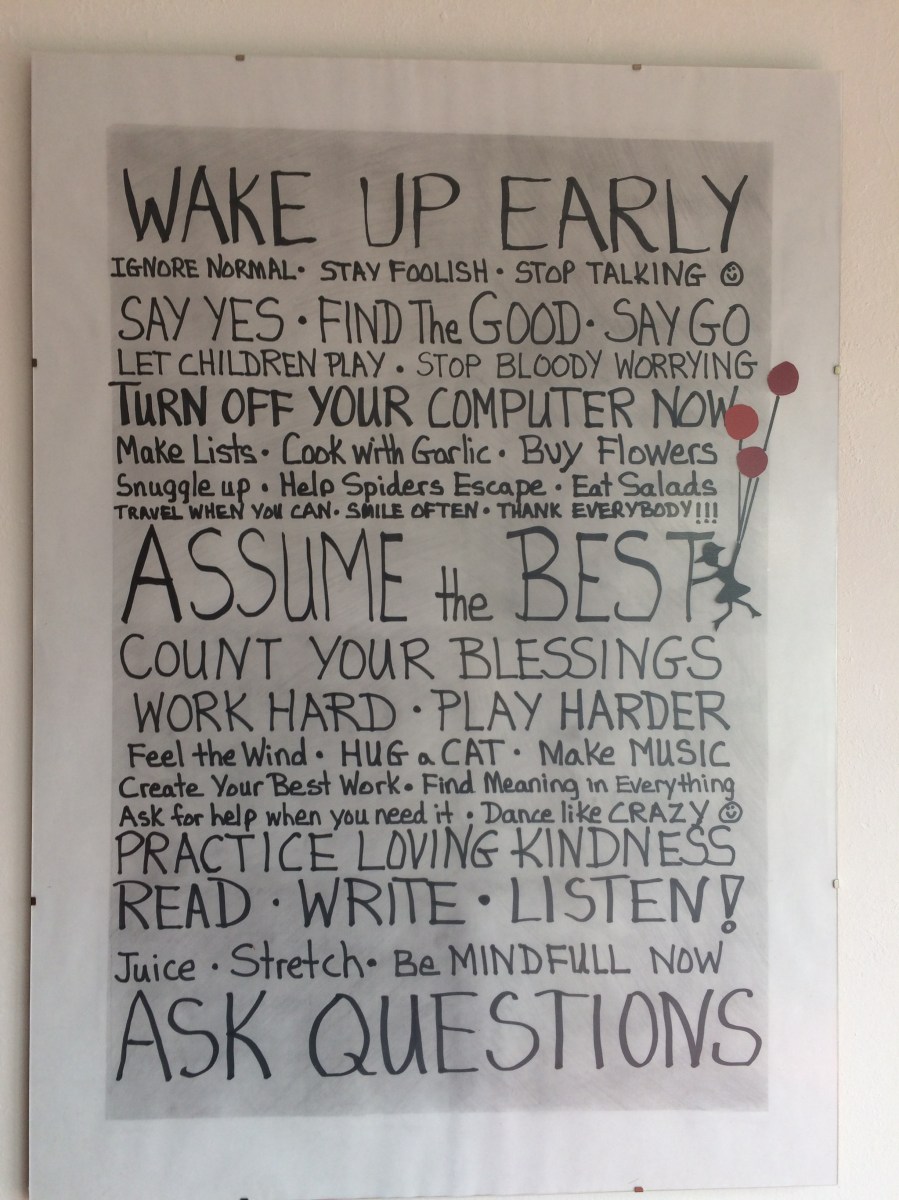 WAKE UP EARLY
IGNORE NORMAL • STAY FOOLISH • STOP TALKING ☺
SAY YES • FIND The GOOD • SAY GO
LET CHILDREN PLAY • STOP BLOODY WORRYING
TURN OFF YOUR COMPUTER NOW
Make Lists • Cook with Garlic • Buy Flowers
Snuggle up • Help Spiders Escape • Eat Salads
TRAVEL WHEN YOU CAN • SMILE OFTEN • THANK EVERYBODY!!!
ASSUME the BEST
COUNT YOUR BLESSINGS
WORK HARD • PLAY HARDER
Feel the Wind • HUG a CAT • Make MUSIC
Create Your Best Work • Find Meaning in Everything
Ask for help when you need it • Dance like CRAZY ☺
PRACTICE LOVING KINDNESS
READ • WRITE • LISTEN!
Juice • Stretch • Be MINDFULL NOW
ASK QUESTIONS